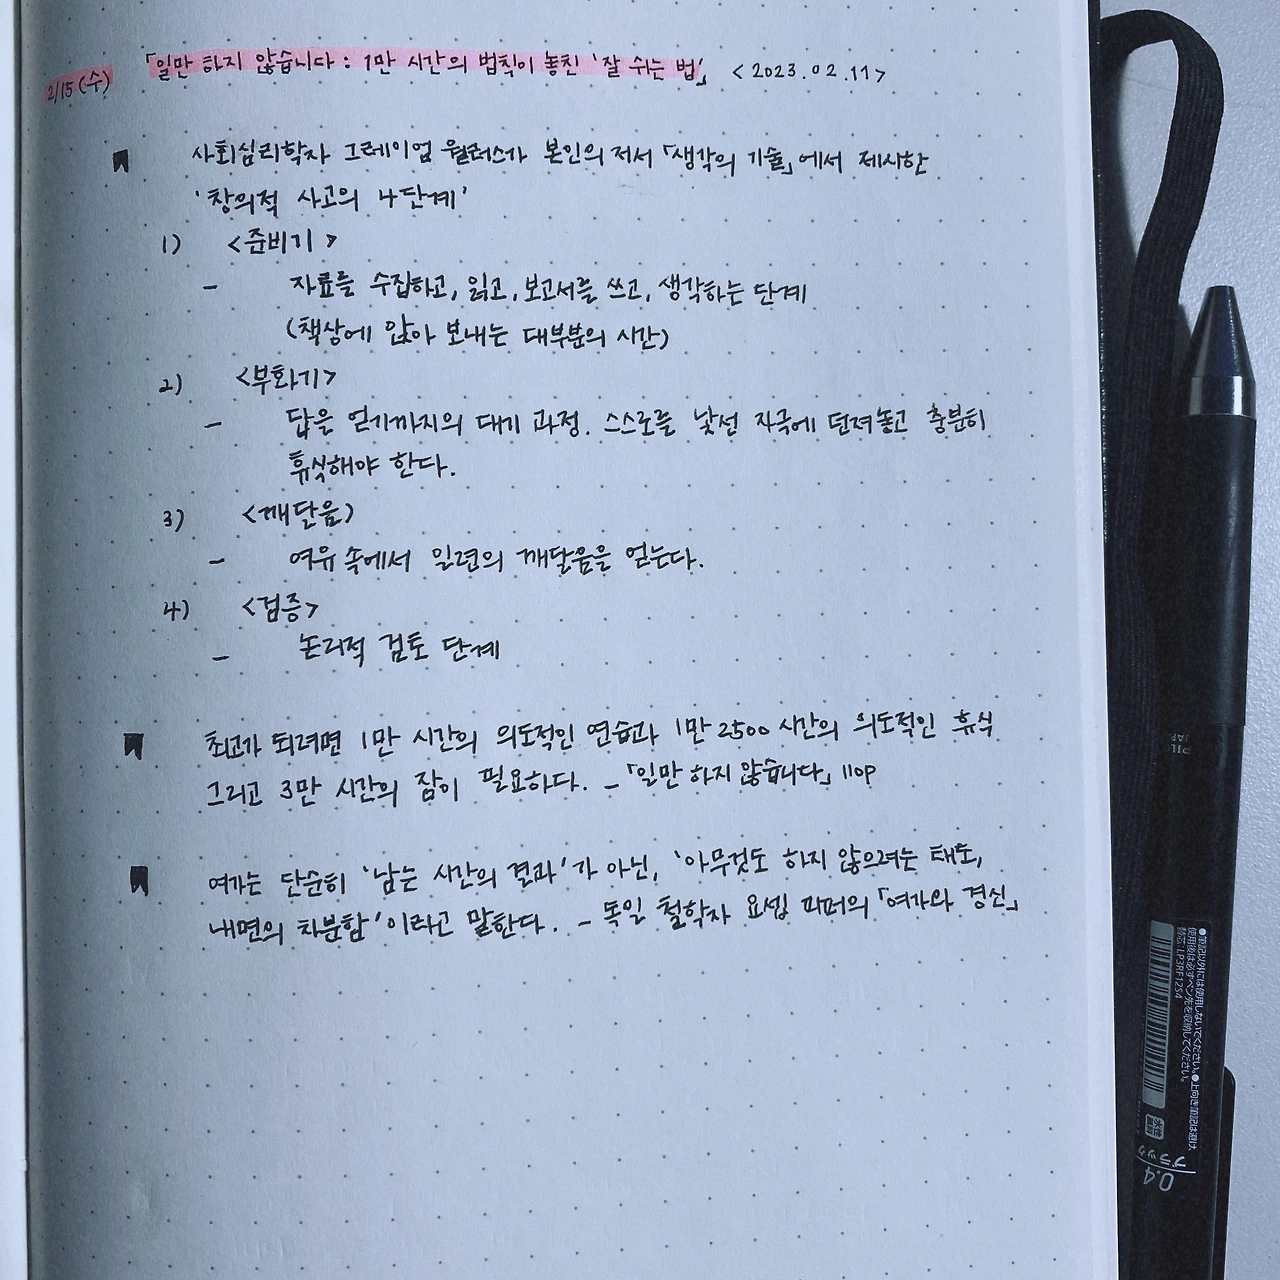 2/15(수) 「일만 하지 않습니다: 1만 시간의 법칙이 놓친 '잘 쉬는 법'」 <2023.02.11>
사회심리학자 그레이엄 월러스가 본인의 저서 「생각의 기술」에서 제시한
'창의적 사고의 4단계'
1) <준비기>
- 자료를 수집하고, 읽고, 보고서를 쓰고, 생각하는 단계
(책상에 앉아 보내는 대부분의 시간)
2) <부화기>
- 답을 얻기까지의 대기 과정. 스스로를 낯선 자극에 던져놓고 충분히
휴식해야 한다.
3) <깨달음>
- 여유 속에서 일련의 깨달음을 얻는다.
4) <검증>
- 논리적 검토 단계
최고가 되려면 1만 시간의 의도적인 연습과 1만 2500 시간의 의도적인 휴식
그리고 3만 시간의 잠이 필요하다. - 「일만 하지 않습니다」 110p
여가는 단순히 '남는 시간의 결과'가 아닌, '아무것도 하지 않으려는 태도,
내면의 차분함'이라고 말한다. - 독일 철학자 요셉 피퍼의 「여가와 경신」
●筆記以外には使用しないでください。●上向き筆記は避け、
使用後は必ずペン先を収納してください。
替芯:LP3RF12S4
水性
ブラック
0.4